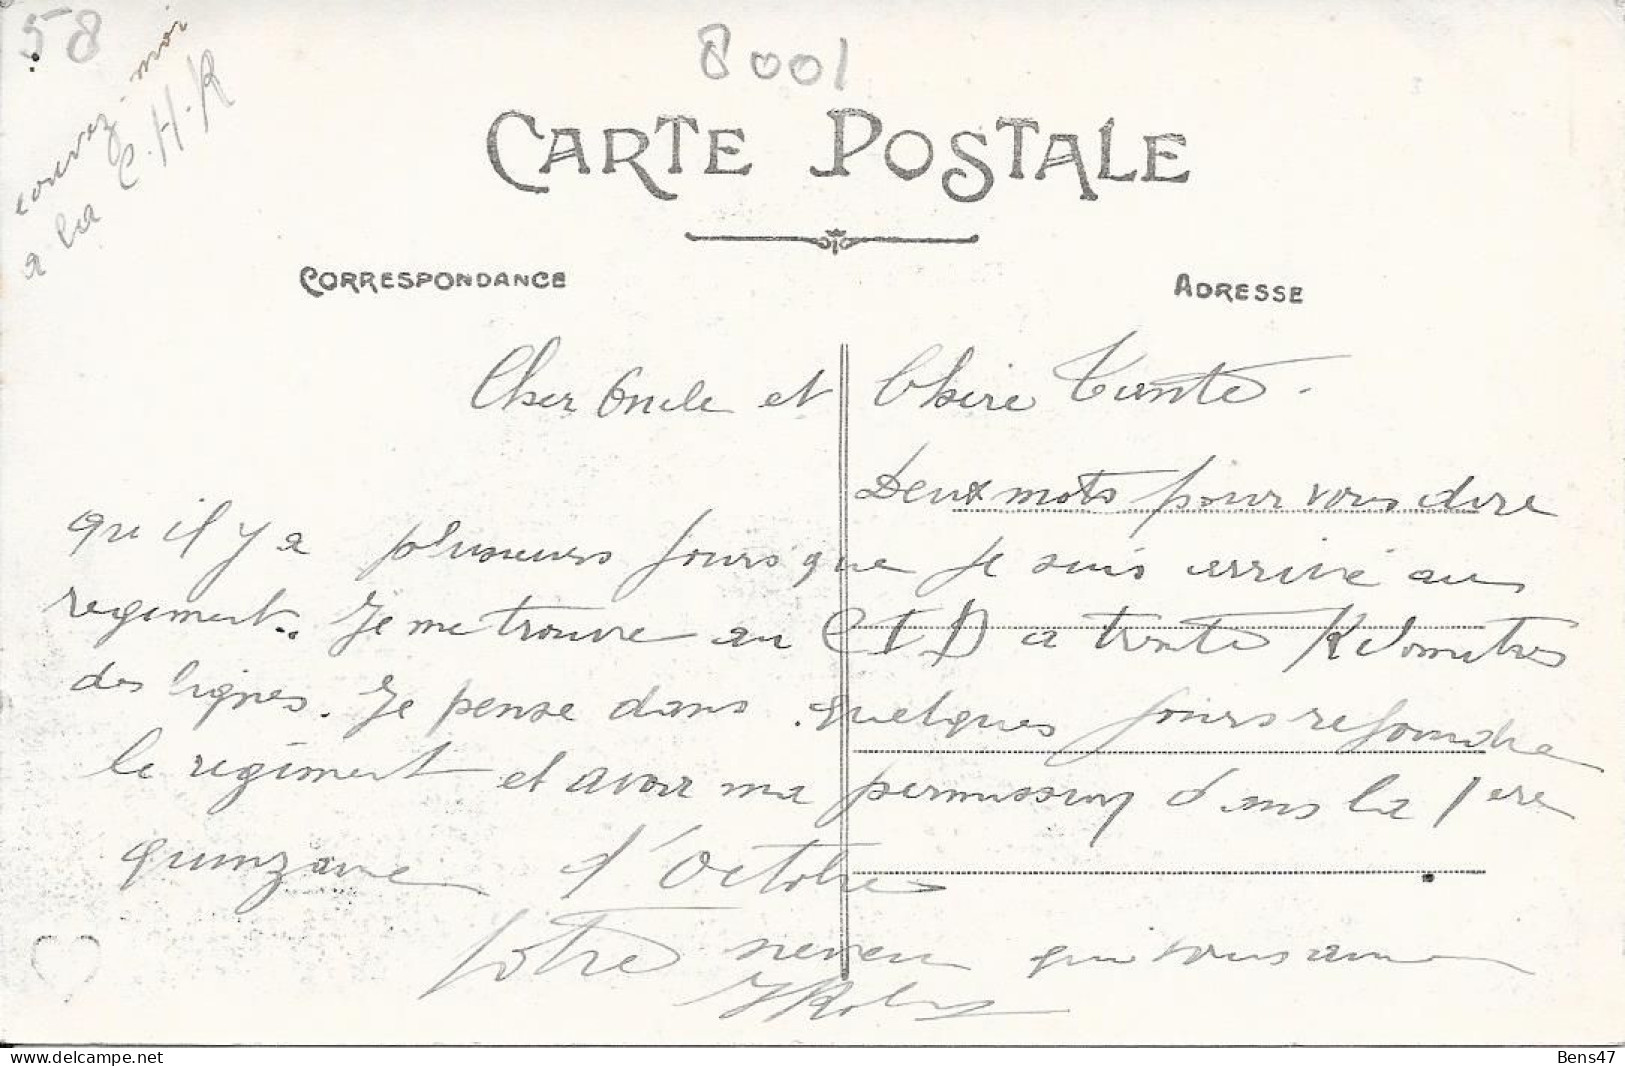 58
ecrivez moi
a la C.H.R
8001
CARTE POSTALE
CORRESPONDANCE
ADRESSE
Cher Oncle et Chere Tante.
Deux mots pour vous dire
qu il y a plusieurs jours que je suis arrivé au
regiment.. Je me trouve au CID a trente Kilometres
des lignes. Je pense dans quelques jours rejoindre
le regiment et avoir ma permission dans la 1ere
quinzaine d'Octobre
Votre neveu qui vous aime
delcampe.net
Bens47